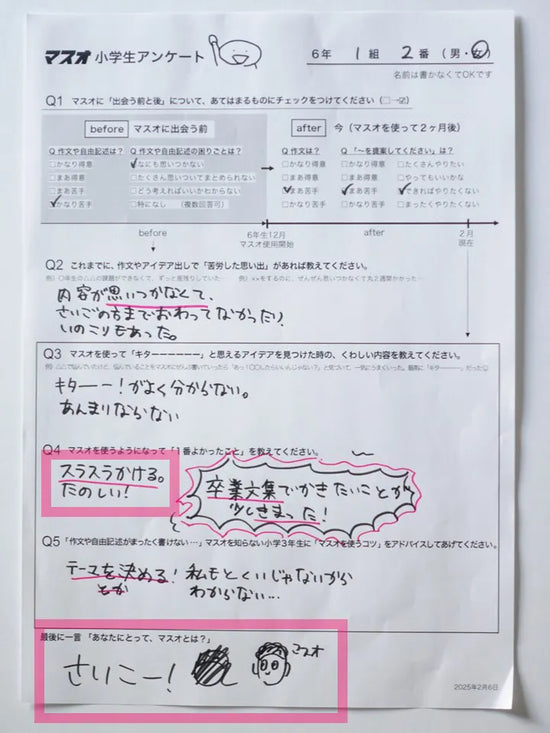 マスオ 小学生アンケート
6年 1組 2番 (男・女)
名前は書かなくてOKです
Q1 マスオに「出会う前と後」について、あてはまるものにチェックをつけてください(□→☑)
before マスオに出会う前
Q 作文や自由記述は?
□かなり得意
□まあ得意
□まあ苦手
☑かなり苦手
Q 作文や自由記述の困りごとは?
☑なにも思いつかない
□たくさん思いついてまとめられない
□どう考えればいいかわからない
□特になし (複数回答可)
after 今(マスオを使って2ヶ月後)
Q 作文は?
□かなり得意
□まあ得意
☑まあ苦手
□かなり苦手
Q 「〜を提案してください」は?
□かなり得意
□まあ得意
☑まあ苦手
□かなり苦手
□たくさんやりたい
□やってもいいかな
☑できればやりたくない
□まったくやりたくない
before
6年生12月
マスオ使用開始
after
2月
現在
Q2 これまでに、作文やアイデア出しで「苦労した思い出」があれば教えてください。
内容が思いつかなくて、
さいごの方までおわってなかったり、
いのこりもあった。
Q3 マスオを使って「キターーーーーー」と思えるアイデアを見つけた時の、くわしい内容を教えてください。
キターー!がよく分からない。
あんまりならない
Q4 マスオを使うようになって「1番よかったこと」を教えてください。
スラスラかける。
たのしい!
卒業文集でかきたいことが
少しきまった!
Q5「作文や自由記述がまったく書けない…」マスオを知らない小学3年生に「マスオを使うコツ」をアドバイスしてあげてください。
テーマを決める!私もとくいじゃないから
とか わからない…
最後に一言「あなたにとって、マスオとは?」
さいこー!
マスオ
2025年2月6日